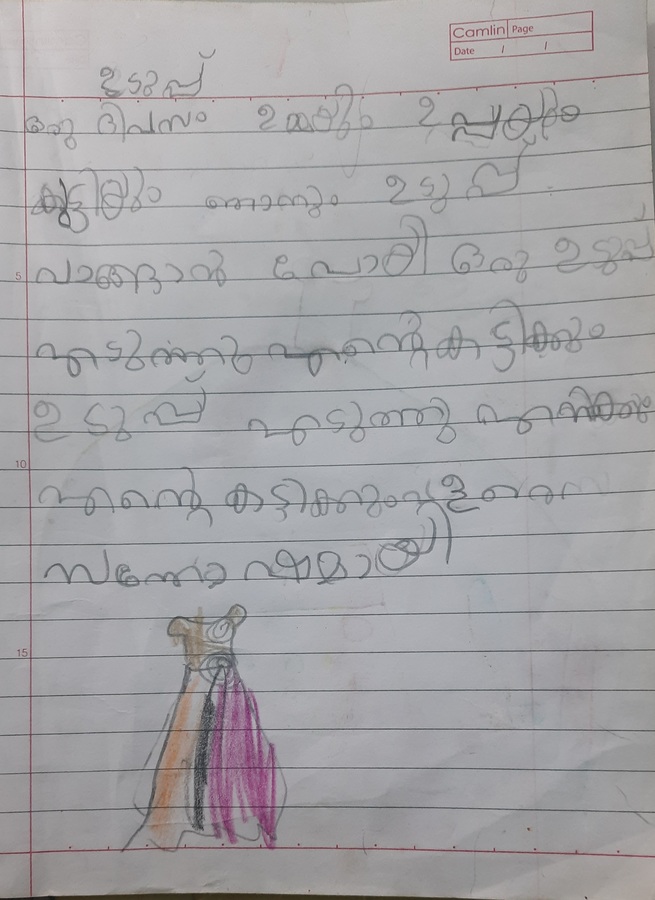 Camlin Page
Date / /
ഉടുപ്പ്
ഒരു ദിപസം ഉമ്മയും ഉപ്പയും
കുട്ടിയും ഞാനും ഉടുപ്പ്
5 വാങ്ങാൻ പോയി ഒരു ഉടുപ്പ്
എടുത്തു എന്റെ കുട്ടിക്കും
ഉടുപ്പ് എടുത്തു എനിക്കും
10 എന്റെ കുട്ടിക്കും
സന്തോഷമായി
15